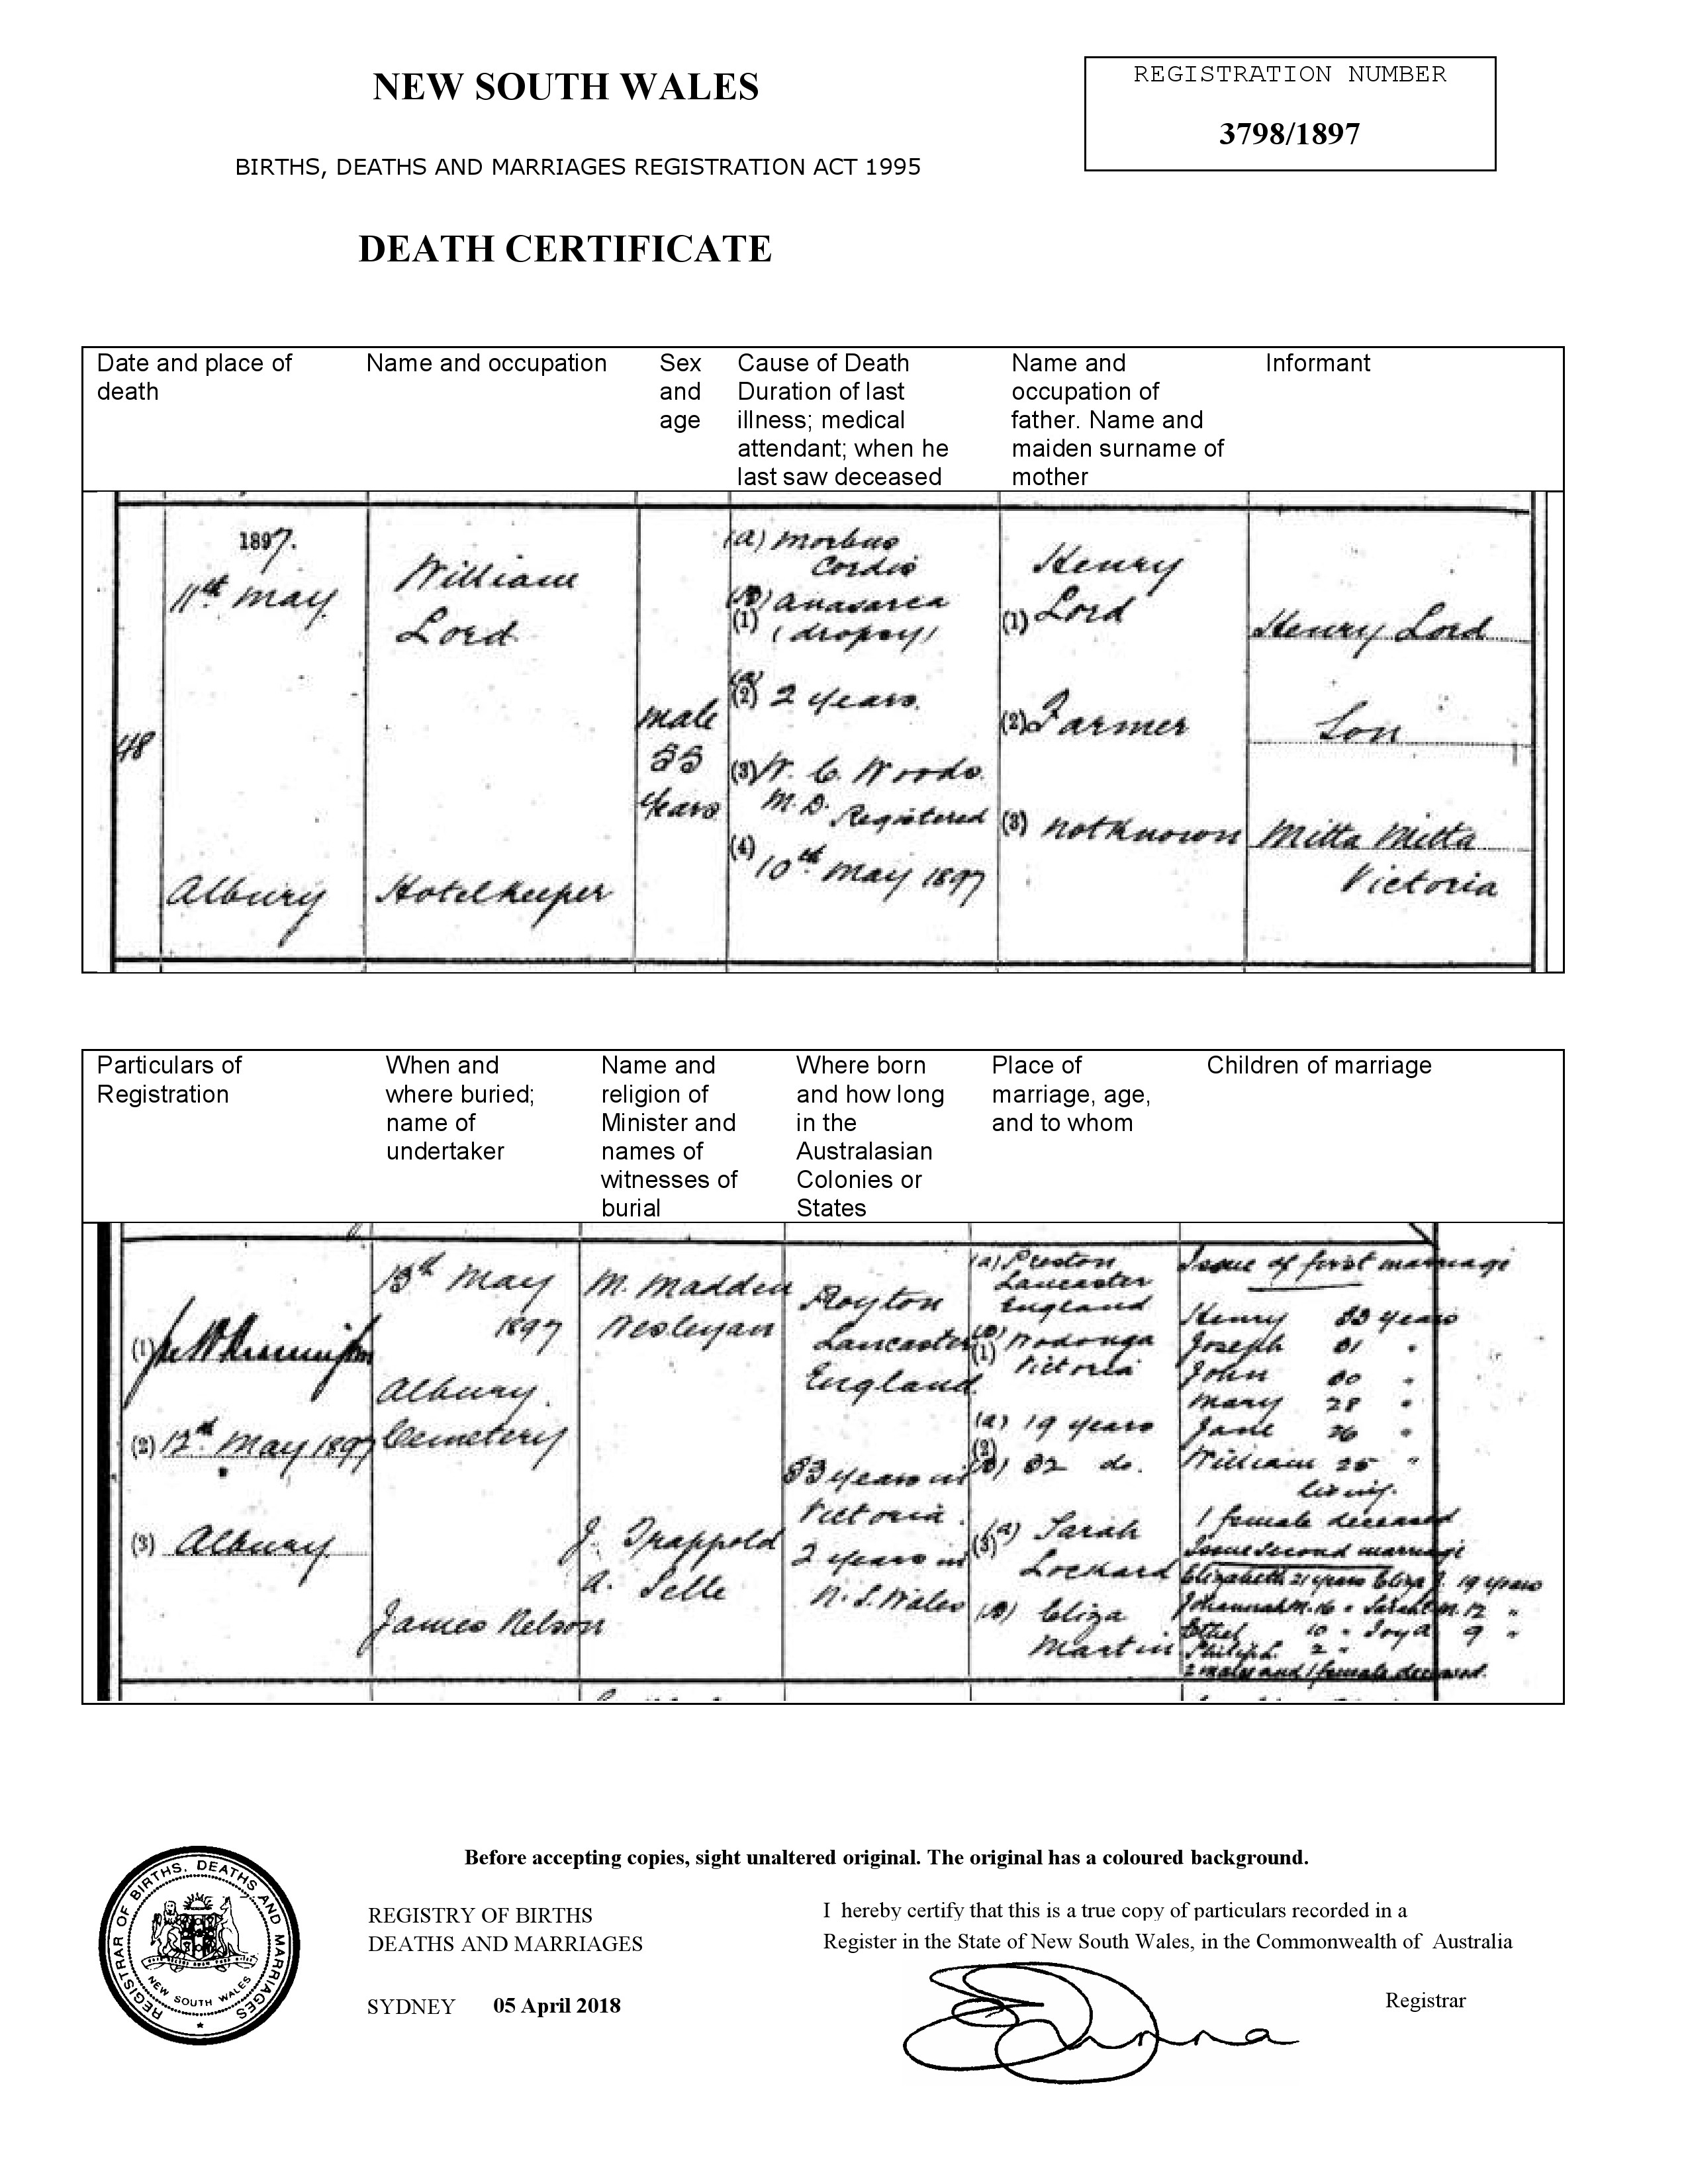 NEW SOUTH WALES
BIRTHS, DEATHS AND MARRIAGES REGISTRATION ACT 1995
DEATH CERTIFICATE
REGISTRATION NUMBER
3798/1897
Date and place of
death
Name and occupation
Sex
and
age
Cause of Death
Duration of last
illness; medical
attendant; when he
last saw deceased
Name and
occupation of
father. Name and
maiden surname of
mother
Informant
48
1897.
11th May
Albury
William
Lord
Hotelkeeper
Male
55
Years
(a) Morbus
Cordis
(B) Anasarca
(1) (dropsy)
(2) 2 Years.
(3) W. C. Woods.
M.D. Registered
(4) 10th May 1897
Henry
(1) Lord
(2) Farmer
(3) Not Known
Henry Lord
Son
Mitta Mitta
Victoria
Particulars of
Registration
When and
where buried;
name of
undertaker
Name and
religion of
Minister and
names of
witnesses of
burial
Where born
and how long
in the
Australasian
Colonies or
States
Place of
marriage, age,
and to whom
Children of marriage
(1)
(2) 12th May 1897
(3) Albury
13th May
1897
Albury
Cemetery
James Nelson
M. Madden
Wesleyan
J. Trappold
A. Selle
Royton
Lancaster
England
33 years in
Victoria.
2 years in
N. S. Wales
(a) Preston
Lancaster
England
(B) Wodonga
(1) Victoria
(a) 19 years
(2)
(B) 32 do.
(a) Sarah
(3)
Lockard
(B) Eliza
Martin
Issue of first marriage
Henry 33 years
Joseph 31 "
John 30 "
Mary 28 "
Jane 26 "
William 25 "
living.
1 female deceased
Issue second marriage
Elizabeth 21 years Eliza J. 19 years
Johannah M. 16 " Sarah M. 12 "
Ethel 10 " Ivy A 9 "
Philip L. 2 "
2 males and 1 female deceased.
REGISTRAR OF BIRTHS, DEATHS AND MARRIAGES
NEW SOUTH WALES
Before accepting copies, sight unaltered original. The original has a coloured background.
REGISTRY OF BIRTHS
DEATHS AND MARRIAGES
SYDNEY 05 April 2018
I hereby certify that this is a true copy of particulars recorded in a
Register in the State of New South Wales, in the Commonwealth of Australia
Registrar